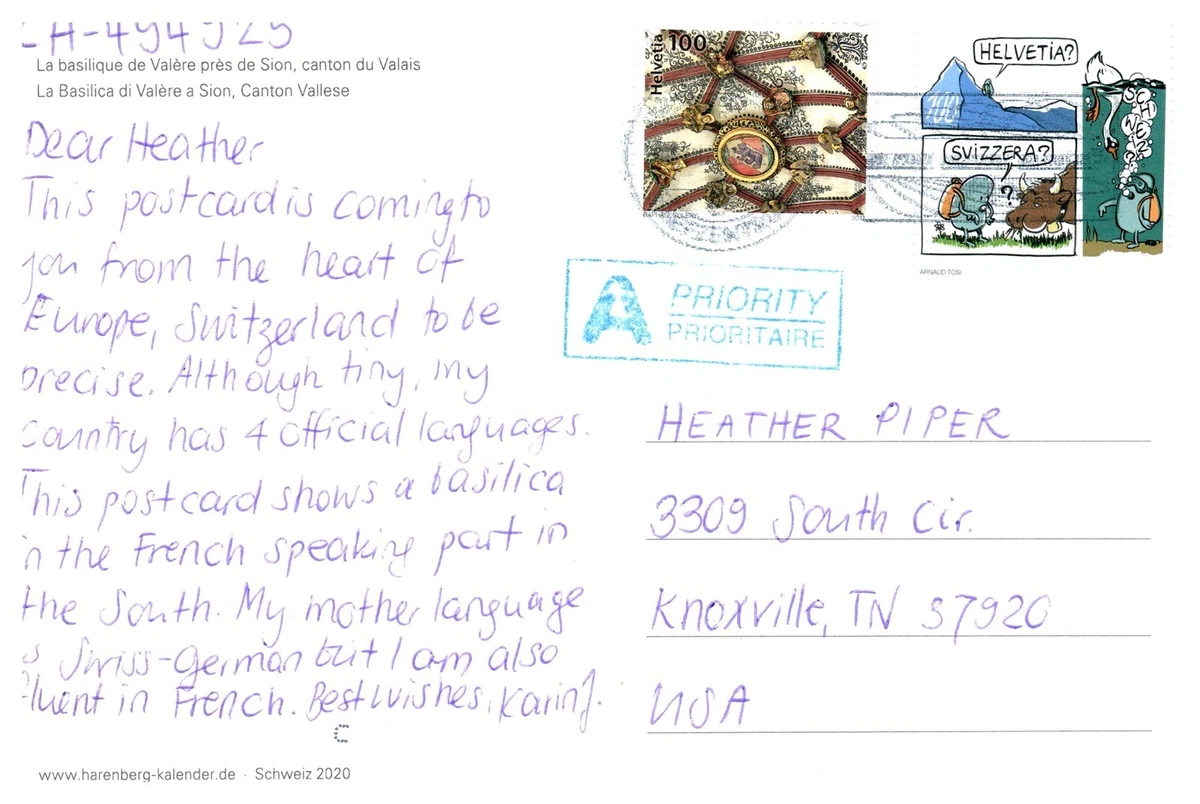 CH-494929
La basilique de Valère près de Sion, canton du Valais
La Basilica di Valère a Sion, Canton Vallese
Dear Heather
This postcard is coming to
you from the heart of
Europe, Switzerland to be
precise. Although tiny, my
country has 4 official languages.
This postcard shows a basilica
in the French speaking part in
the South. My mother language
is Swiss-German but I am also
fluent in French. Best wishes, Karin J.
www.harenberg-kalender.de · Schweiz 2020
Helvetia 100
HELVETIA?
100
SVIZZERA?
?
?
SCHWEIZ?
ARNAUD TOSI
A PRIORITY
PRIORITAIRE
HEATHER PIPER
3309 South Cir.
Knoxville, TN 37920
USA